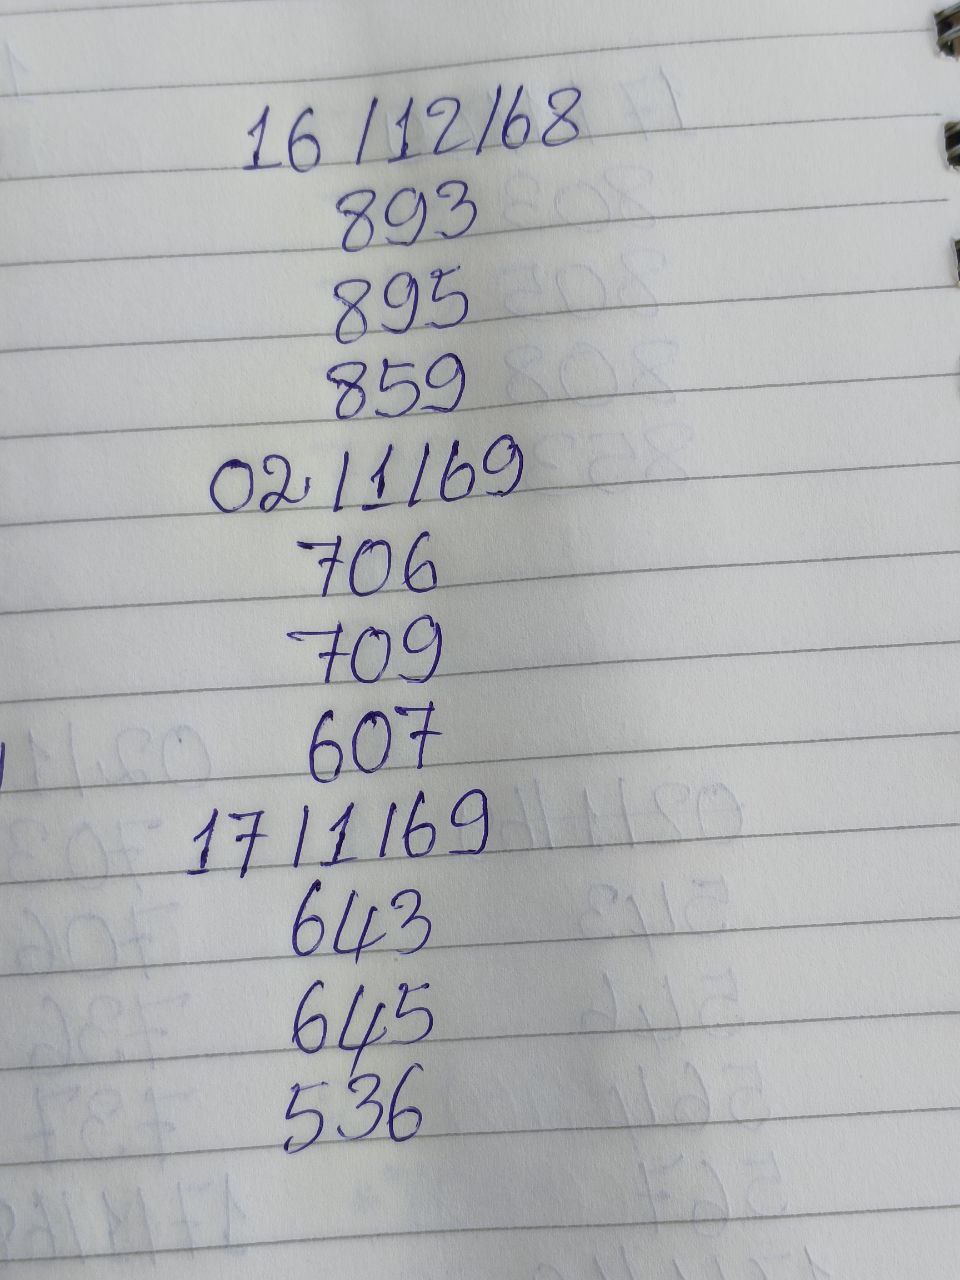 16/12/68
893
895
859
02/1/69
706
709
607
17/1/69
643
645
536